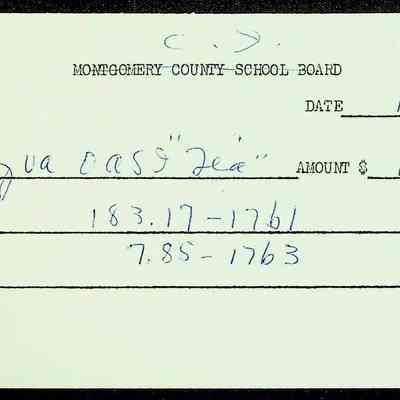 C. D.
MONTGOMERY COUNTY SCHOOL BOARD
DATE
ua cas "Tea" AMOUNT $
183.17-1761
7.85-1763